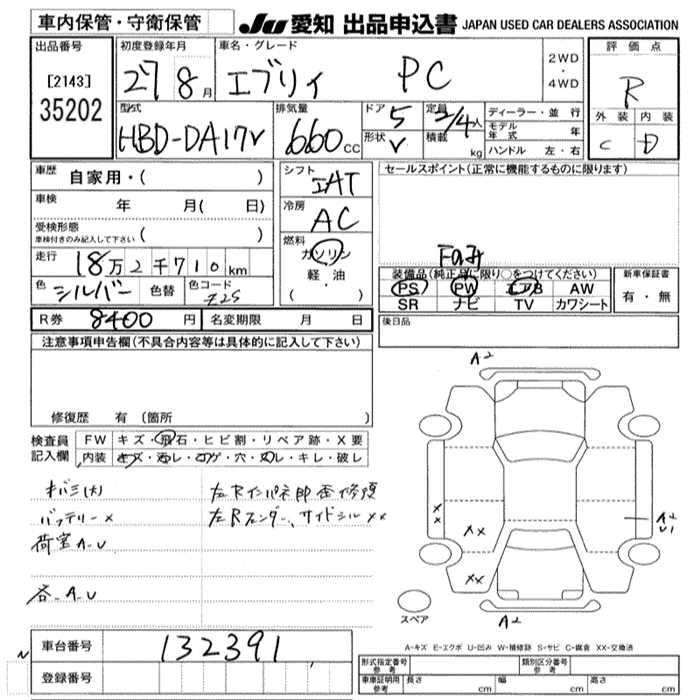 車内保管・守衛保管
JU 愛知 出品申込書 JAPAN USED CAR DEALERS ASSOCIATION
出品番号 初度登録年月 車名・グレード 2WD・4WD 評価点
[2143] 27 8月 エブリィ PC R
35202
型式 排気量 ドア 5 定員 2/4人 ディーラー・並行 外装 内装
HBD-DA17V 660cc 形状 V 積載 kg モデル年式 年 C D
ハンドル 左・右
車歴 自家用・( ) シフト IAT セールスポイント(正常に機能するものに限ります)
車検 年 月( 日) 冷房 AC
受検形態 車検付きのみ記入して下さい ( )
燃料 ガソリン 軽油 ( ・ )
走行 18万2千710km
Fのみ
装備品(純正品に限り○をつけてください) 新車保証書
色 シルバー 色替 色コード Z2S
PS PW エアB AW 有・無
SR ナビ TV カワシート
R券 8400円 名変期限 月 日 後日品
注意事項申告欄(不具合内容等は具体的に記入して下さい)
A2
修復歴 有(箇所 )
検査員記入欄 FW キズ・飛石・ヒビ割・リペア跡・X要
内装 キズ・汚レ・コゲ・穴・スレ・キレ・破レ
オバミ(大) 左Rインパネ部歪修頃
バッテリー× 左Rフェンダー、サイドシル××
荷室A-U
各-A-U
×× ×× ××
A2 U1
スペア A2
A-キズ E-エクボ U-凹み W-補修跡 S-サビ C-腐食 XX-交換済
車台番号 132391
登録番号
形式指定番号 参考 類別区分番号 参考
車庫証明用 参考 長さ cm 幅 cm 高さ cm